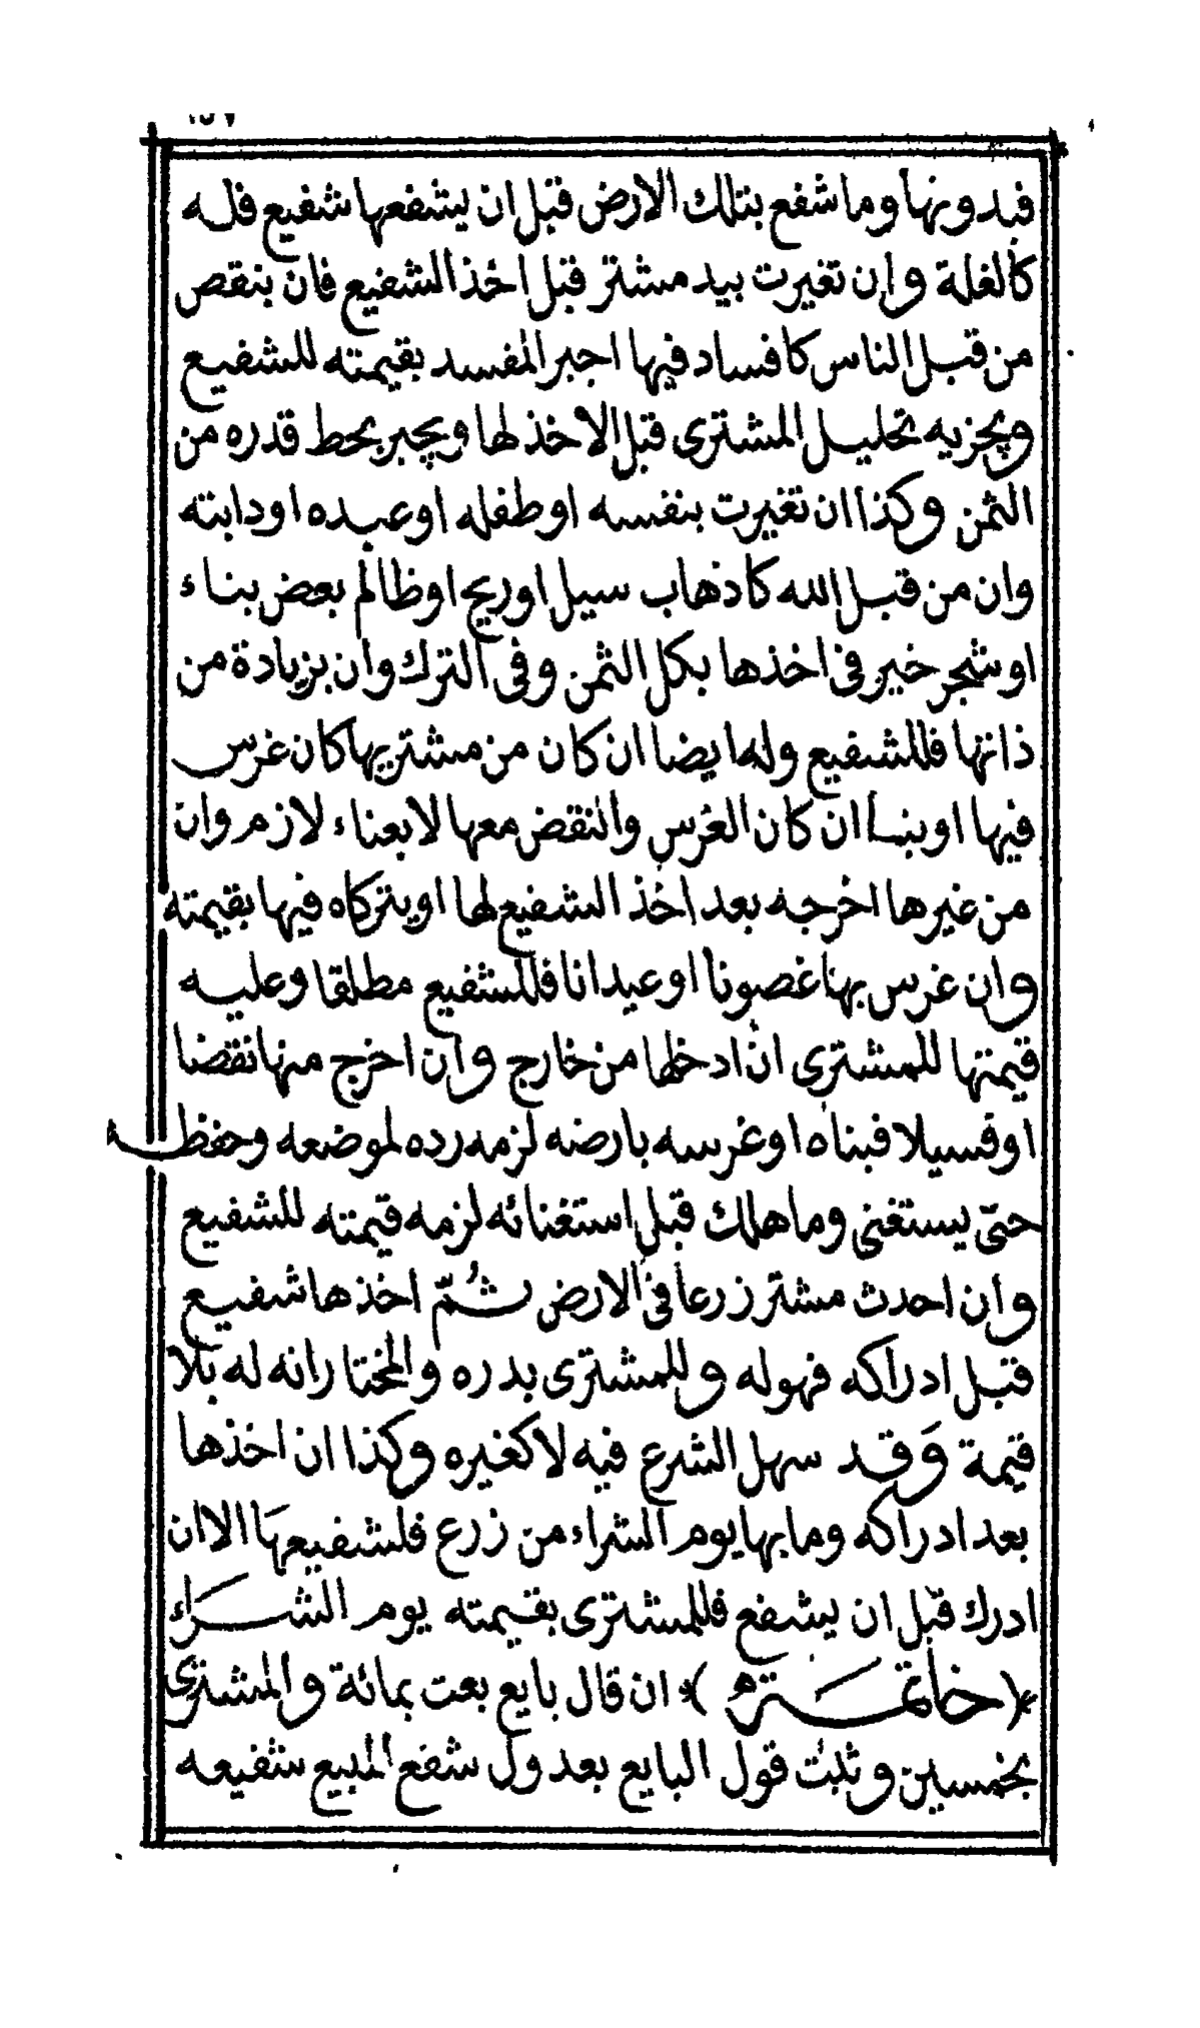 فبدونها وما شفع بتلك الارض قبل ان يشفعها شفيع فله
كالغلة وان تغيرت بيد مشتر قبل اخذ الشفيع فان بنقص
من قبل الناس كافساد فيها اجبر المفسد بقيمته للشفيع
ويجزيه تحليل المشترى قبل الاخذ لها ويجبر بحط قدره من
الثمن وكذا ان تغيرت بنفسه او طفله او عبده او دابته
وان من قبل الله كاذهاب سيل او ريح او ظالم بعض بناء
او شجر خير فى اخذها بكل الثمن وفى الترك وان بزيادة من
ذاتها فللشفيع وله ايضا ان كان من مشتريها كان غرس
فيها او بنا ان كان الغرس والنقض معها لا بعناء لازم وان
من غيرها اخرجه بعد اخذ الشفيع لها او يتركاه فيها بقيمته
وان غرس بها غصونا او عيدانا فللشفيع مطلقا وعليه
قيمتها للمشترى ان ادخلها من خارج وان اخرج منها نقضا
او فسيلا فبناه او غرسه بارضه لزمه رده لموضعه وحفظ
حتى يستغنى وما هلك قبل استغنائه لزمه قيمته للشفيع
وان احدث مشتر زرعا فى الارض ثُمّ اخذها شفيع
قبل ادراكه فهوله وللمشترى بدره والمختار انه له بلا
قيمة وَقد سهل الشرع فيه لا كغيره وكذا ان اخذها
بعد ادراكه وما بها يوم الشراء من زرع فلشفيعها الا ان
ادرك قبل ان يشفع فللمشترى بقيمته يوم الشراء
﴿خاتمة﴾ ان قال بايع بعت بمائة والمشترى
بخمسين وثبت قول البايع بعد ول شفع المبيع شفيعه